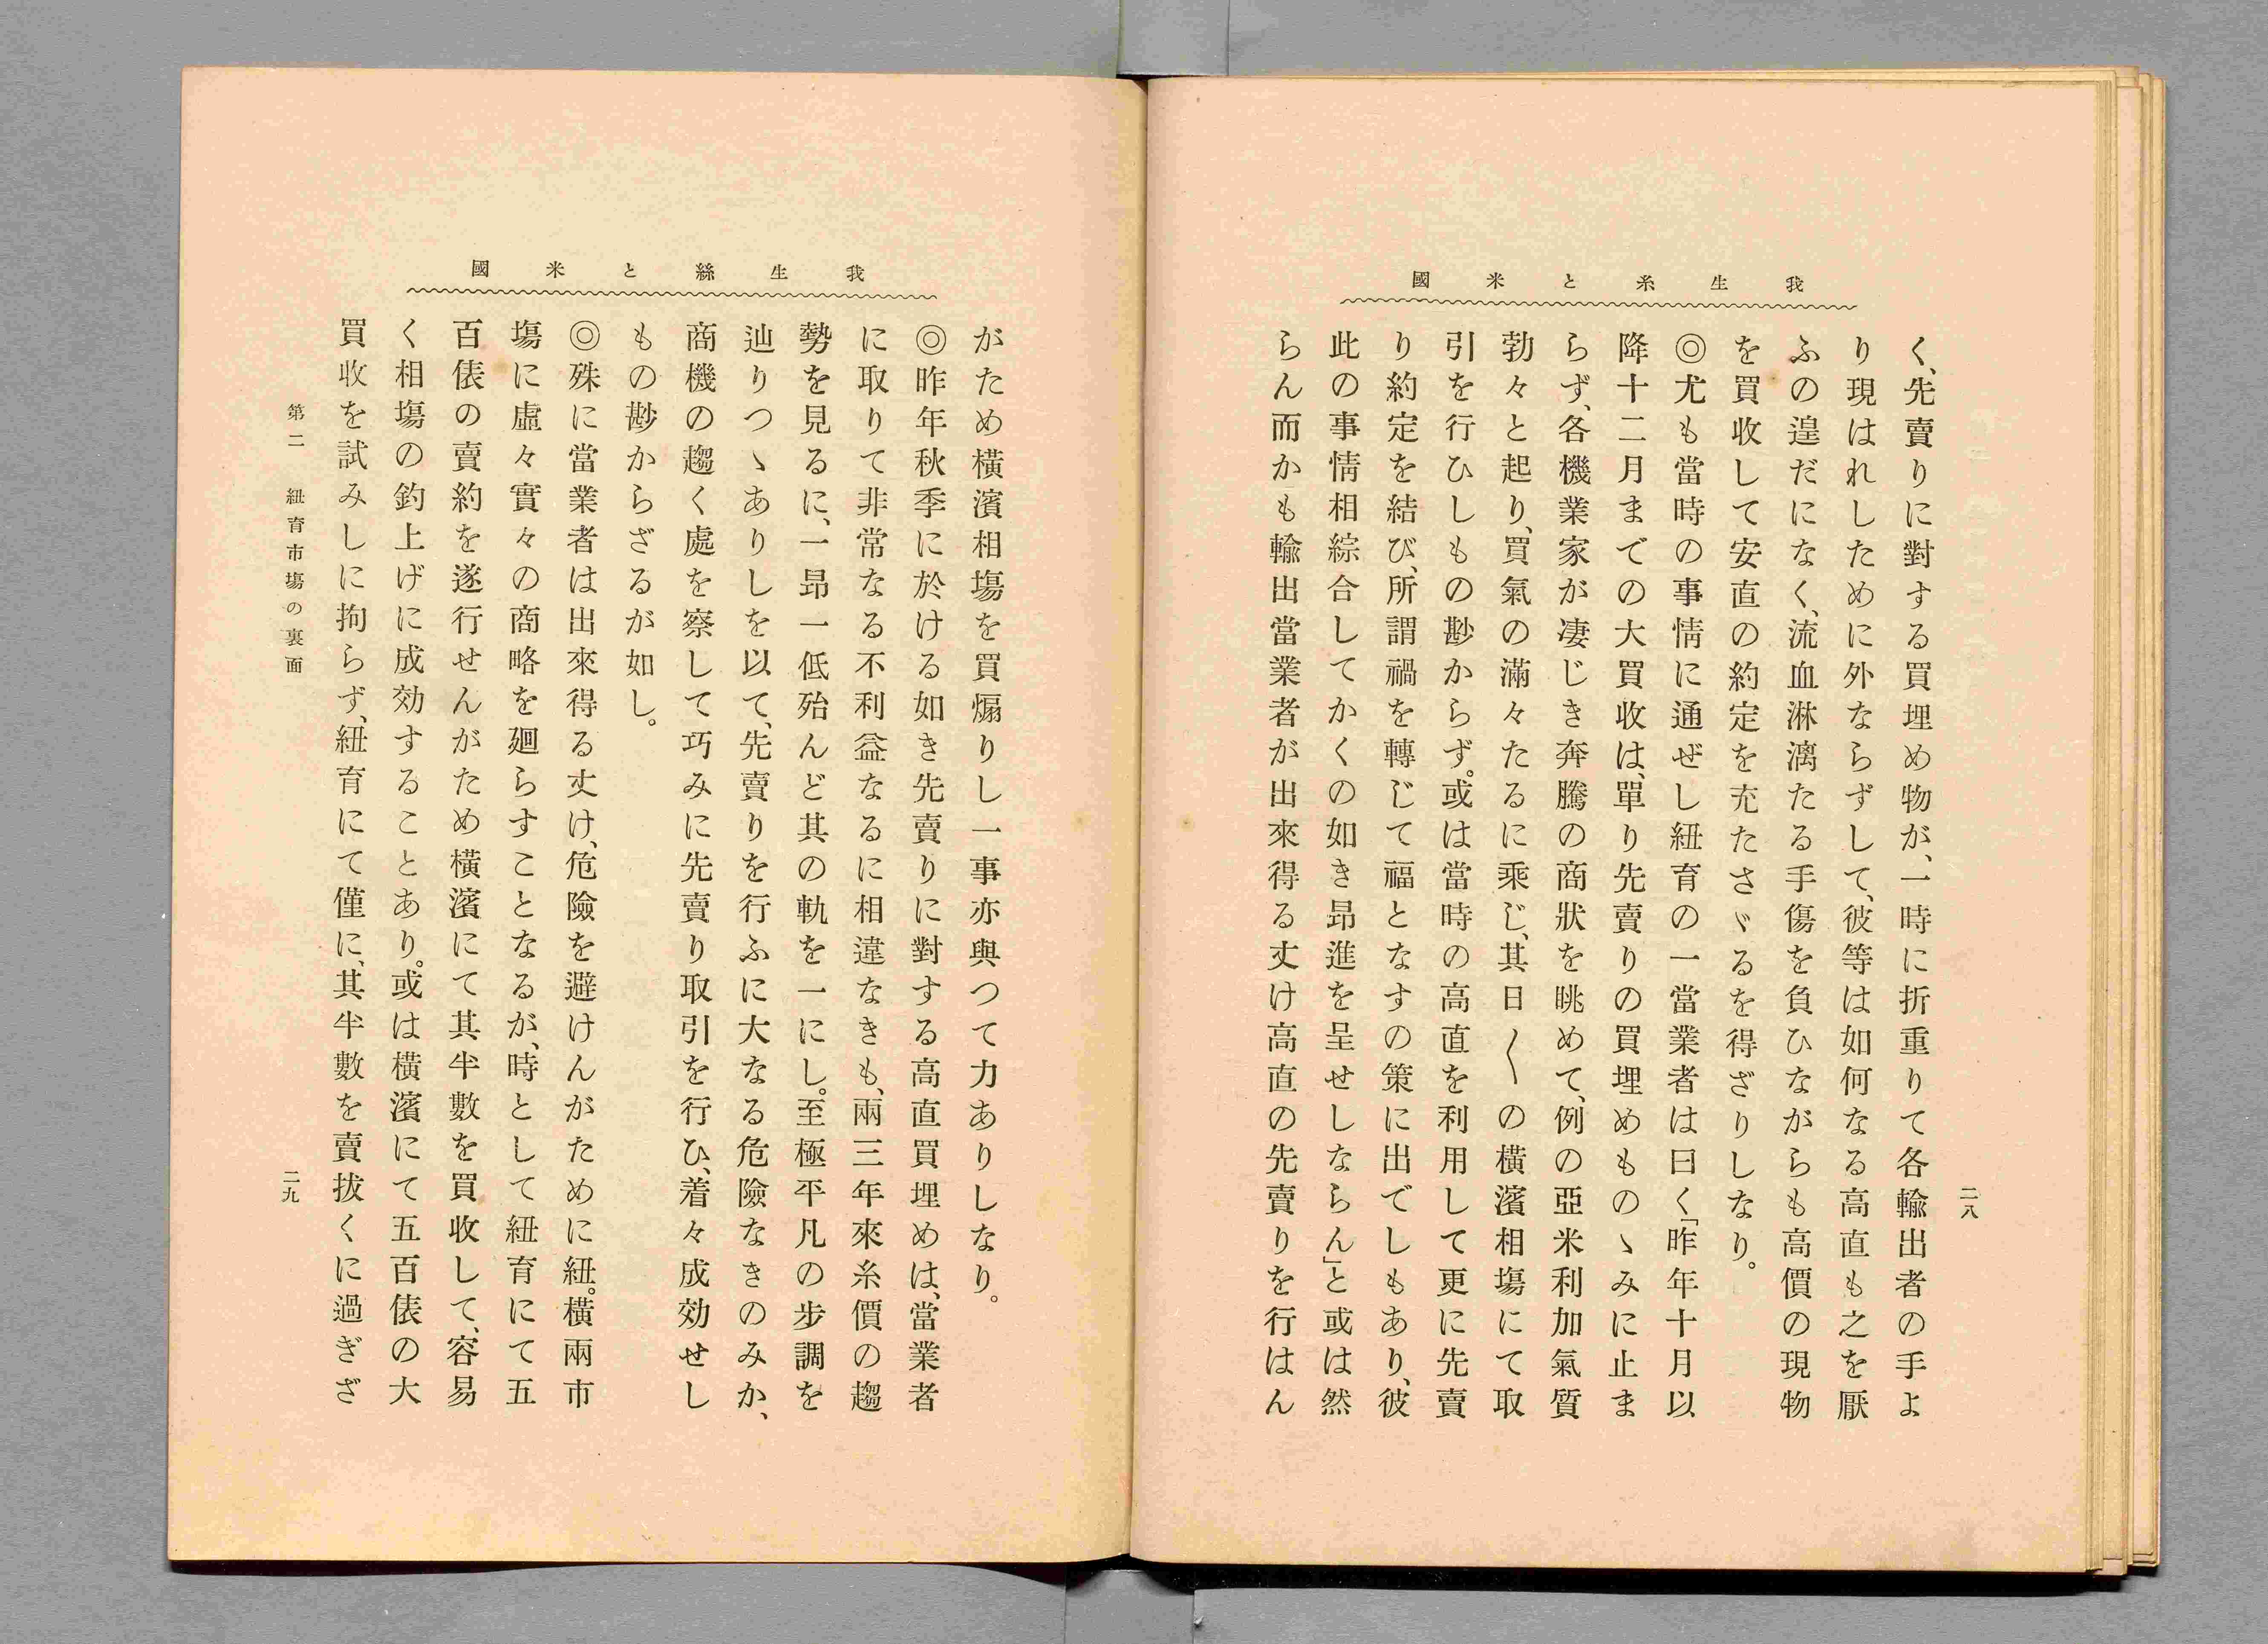 我生糸と米國
二八
く、先賣りに對する買埋め物が、一時に折重りて各輸出者の手よ
り現はれしために外ならずして、彼等は如何なる高直も之を厭
ふの遑だになく、流血淋漓たる手傷を負ひながらも高價の現物
を買收して安直の約定を充たさゞるを得ざりしなり。
◎尤も當時の事情に通ぜし紐育の一當業者は曰く「昨年十月以
降十二月までの大買收は、單り先賣りの買埋めものゝみに止ま
らず、各機業家が凄じき奔騰の商狀を眺めて、例の亞米利加氣質
勃々と起り、買氣の滿々たるに乘じ、其日〱の横濱相塲にて取
引を行ひしもの尠からず。或は當時の高直を利用して更に先賣
り約定を結び、所謂禍を轉じて福となすの策に出でしもあり、彼
此の事情相綜合してかくの如き昴進を呈せしならん」と或は然
らん而かも輸出當業者が出來得る丈け高直の先賣りを行はん
我生絲と米國
がため横濱相塲を買煽りし一事亦與つて力ありしなり。
◎昨年秋季に於ける如き先賣りに對する高直買埋めは、當業者
に取りて非常なる不利益なるに相違なきも、兩三年來糸價の趨
勢を見るに、一昻一低殆んど其の軌を一にし。至極平凡の步調を
辿りつゝありしを以て、先賣りを行ふに大なる危險なきのみか、
商機の趨く處を察して巧みに先賣り取引を行ひ、着々成効せし
もの尠からざるが如し。
◎殊に當業者は出來得る丈け、危險を避けんがために紐。横兩市
塲に虛々實々の商略を廻らすことなるが、時として紐育にて五
百俵の賣約を遂行せんがため横濱にて其半數を買收して、容易
く相塲の釣上げに成効することあり。或は横濱にて五百俵の大
買收を試みしに拘らず、紐育にて僅に、其半數を賣拔くに過ぎざ
第二 紐育市塲の裏面
二九